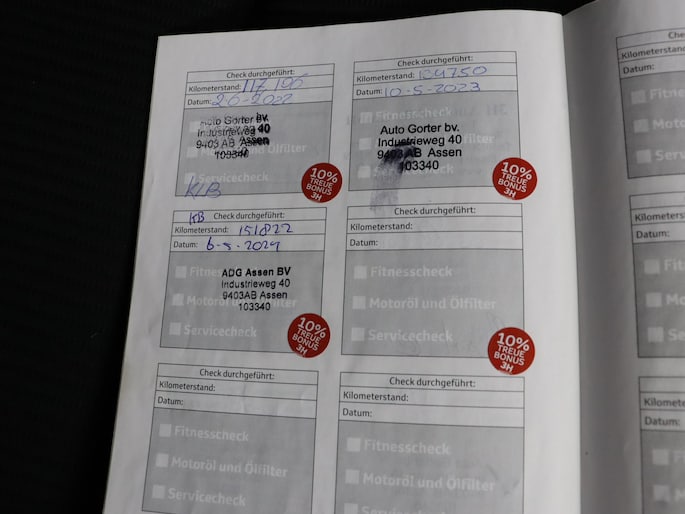 Check durchgeführt:
Kilometerstand: 117.196
Datum: 2-6-2022
Auto Gorter bv.
Industrieweg 40
9403 AB Assen
103340
Ölfilter
Servicecheck
K/B
10%
TREUE
BONUS
3H
Check durchgeführt:
Kilometerstand: 134750
Datum: 10-5-2023
Fitnesscheck
Auto Gorter bv.
Industrieweg 40
9403 AB Assen
103340
Servicecheck
10%
TREUE
BONUS
3H
KB Check durchgeführt:
Kilometerstand: 151822
Datum: 6-5-2024
Fitnesscheck
ADG Assen BV
Industrieweg 40
9403AB Assen
103340
Motoröl und Ölfilter
Servicecheck
10%
TREUE
BONUS
3H
Check durchgeführt:
Kilometerstand:
Datum:
Fitnesscheck
Motoröl und Ölfilter
Servicecheck
10%
TREUE
BONUS
3H
Check durchgeführt:
Kilometerstand:
Datum:
Fitnesscheck
Motoröl und Ölfilter
Servicecheck
Check durchgeführt:
Kilometerstand:
Datum:
Fitnesscheck
Motoröl und Ölfilter
Servicecheck
Kilometerstand
Datum:
Datum:
Datum: